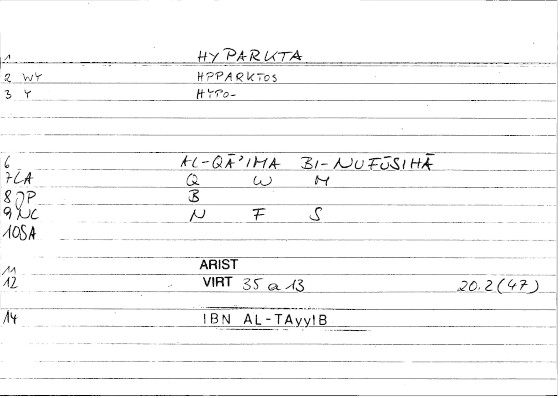 1 HYPARKTA
2 WY HPPARKTOS
3 Y HYPO-
6 AL-QĀ'IMA BI-NUFŪSIHĀ
7LA Q W M
8 JP B
9 NC N F S
10SA
11 ARIST
12 VIRT 35 a 13 20.2(47)
14 IBN AL-TAyyIB